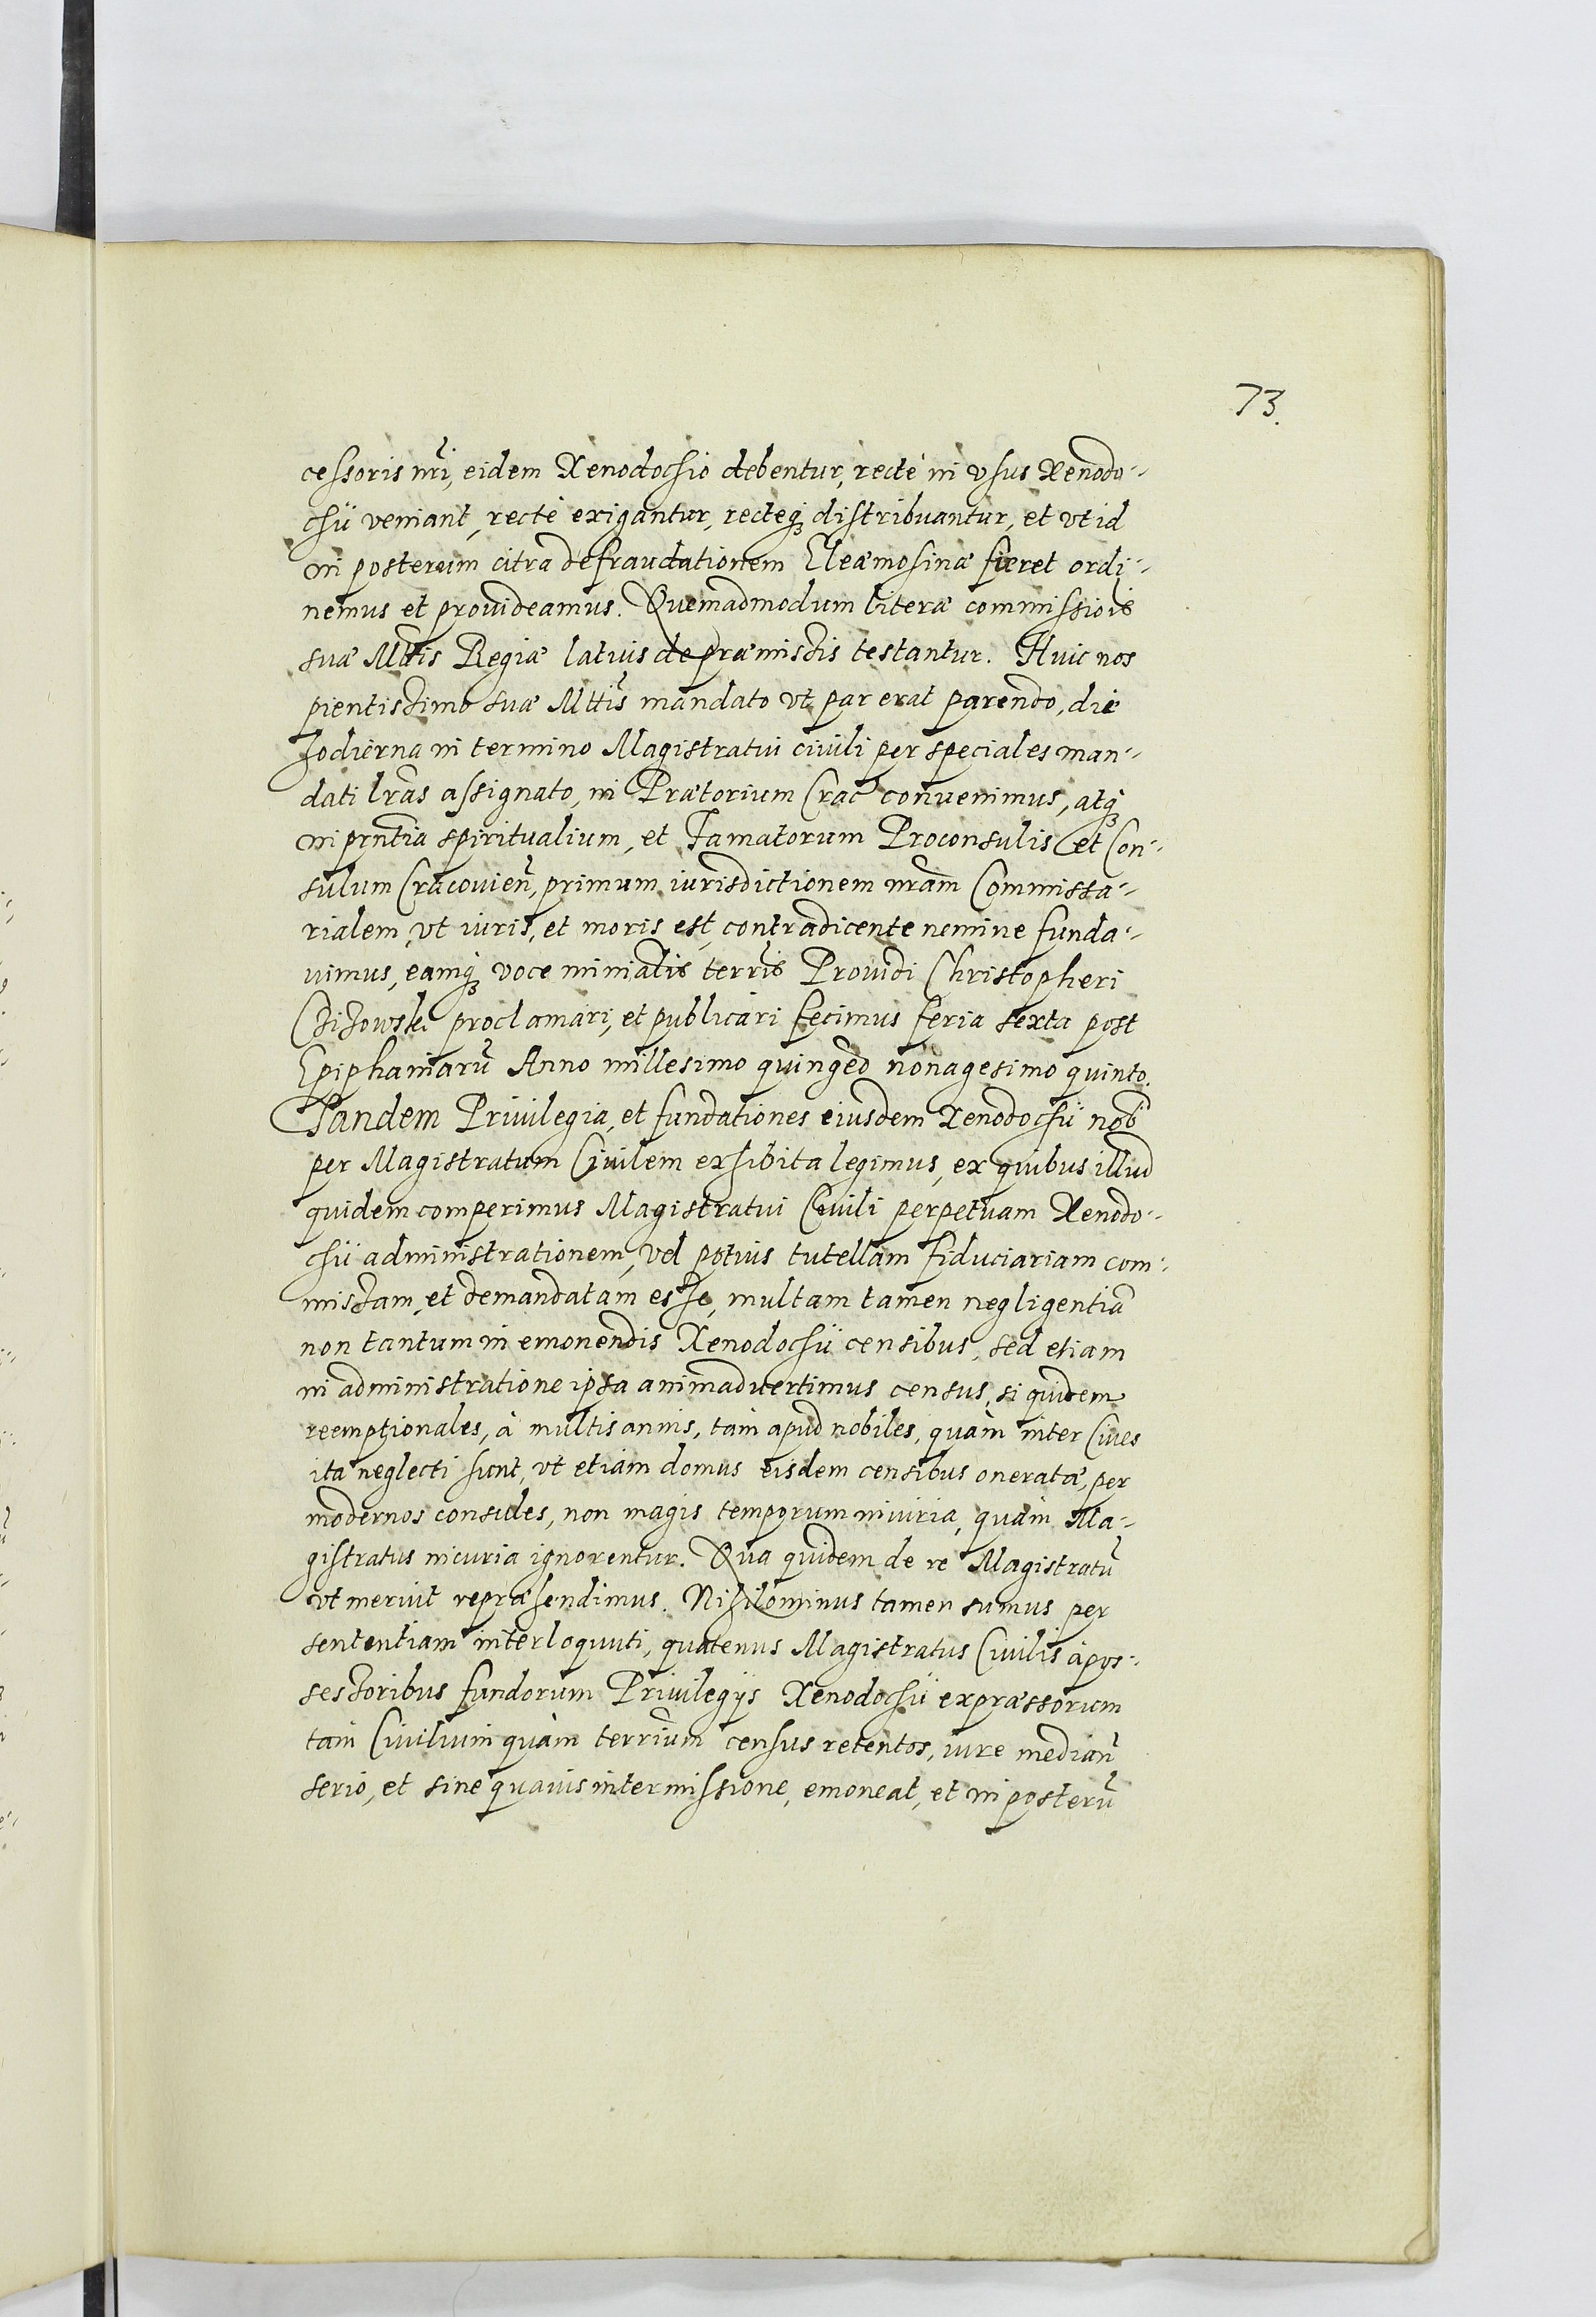 73.
cessoris nr̃i, eidem Xenodochio debentur, rectè in vsus Xenodo-
chii veniant, rectè exigantur, rectéq; distribuantur, et vt id
in posterum citra defraudationem Eleæmosinæ fieret ordi-
nemus et prouideamus. Quemadmodum literæ commissiois
suæ Mttis Regiæ latius de præmissis testantur. Huic nos
pientissimo suæ Mttis mandato vt par erat parendo, die
hodierna in termino Magistratui ciuili per speciales man-
dati lr̃as assignato, in Prætorium Crac conuenimus, atq;
in prñtia spiritualium, et Famatorum Proconsulis et Con-
sulum Cracouień, primum iurisdictionem nr̃am Commissa-
rialem, vt iuris, et moris est, contradicente nemine funda-
uimus, eamq; voce minialis terrr̃is Prouidi Christopheri
proclamari, et publicari fecimus feria sexta post
Epiphaniarũ Anno millesimo quingẽo nonagesimo quinto.
Tandem Priuilegia, et fundationes eiusdem Xenodochii nob
per Magistratum Ciuilem exhibita legimus, ex quibus illud
quidem comperimus Magistratui Ciuili perpetuam Xenodo-
chii administrationem, vel potius tutellam fiduciariam com-
missam, et demandatam esse, multam tamen negligentiã
non tantum in emonendis Xenodochii censibus, sed etiam
in administratione ipsa animaduertimus census, si quidem
reemptionales, à multis annis, tam apud nobiles, quàm inter Ciues
ita neglecti sunt, vt etiam domus eisdem censibus oneratæ, per
modernos consules, non magis temporum iniuria, quàm Ma-
gistratus incuria ignorentur. Qua quidem de re Magistratũ
vt meruit repræhendimus. Nihilominus tamen sumus per
sententiam interloquuti, quatenus Magistratus Ciuilis à pos-
sessoribus fundorum Priuilegijs Xenodochii expræssorum
tam Ciuilium quàm terrr̃ium census retentos, iure mediañ
serio, et sine quauis intermissione, emoneat, et in posterũ